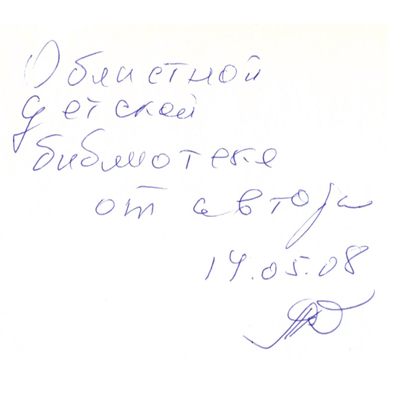 Областной
детской
библиотеке
от автора
14.05.08